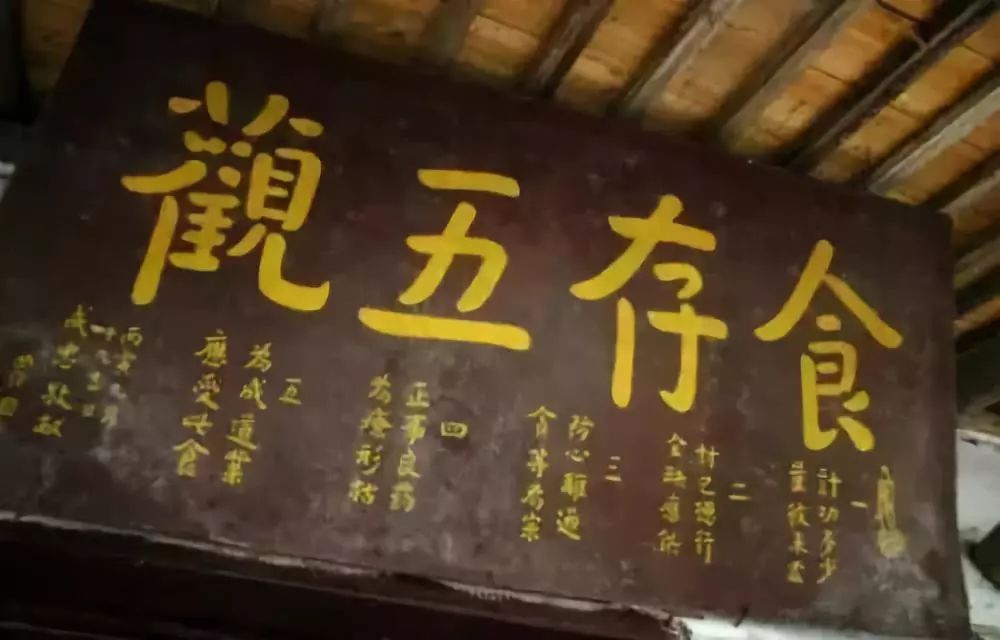 食存五觀
一
計功多少
量彼來處
二
忖己德行
全缺應供
三
防心離過
貪等為宗
四
正事良药
為療形枯
五
為成道業
應受此食